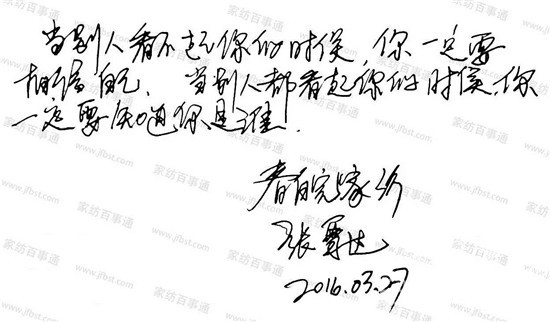 当别人看不起你的时侯，你一定要
相信自己．当别人都看起你的时侯，你
一定要知道你是谁．
家纺
张
2016.03.27
家纺百事通
www.jfbst.com